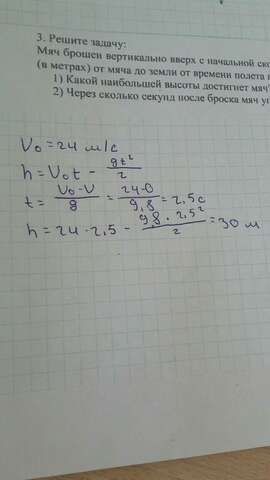 3. Решите задачу:
Мяч брошен вертикально вверх с начальной
(в метрах) от мяча до земли от времени полета
1) Какой наибольшей высоты достигнет мяч
2) Через сколько секунд после броска мяч
V₀ = 24 м/с
h = V₀t - gt²/2
t = V₀-V/g = 24-0/9,8 = 2,5 с
h = 24 · 2,5 - 9,8 · 2,5²/2 = 30 м